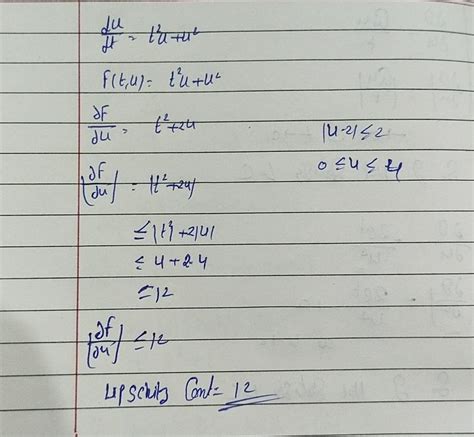 du/dt = t²u+u²
F(t,u) = t²u+u²
∂F/∂u = t²+2u
|u-2| ≤ 2
0 ≤ u ≤ 4
|∂F/∂u| = |t²+2u|
≤ |t²|+2|u|
≤ 4+2.4
≤ 12
|∂F/∂u| ≤ 12
Lipschitz Cont = 12